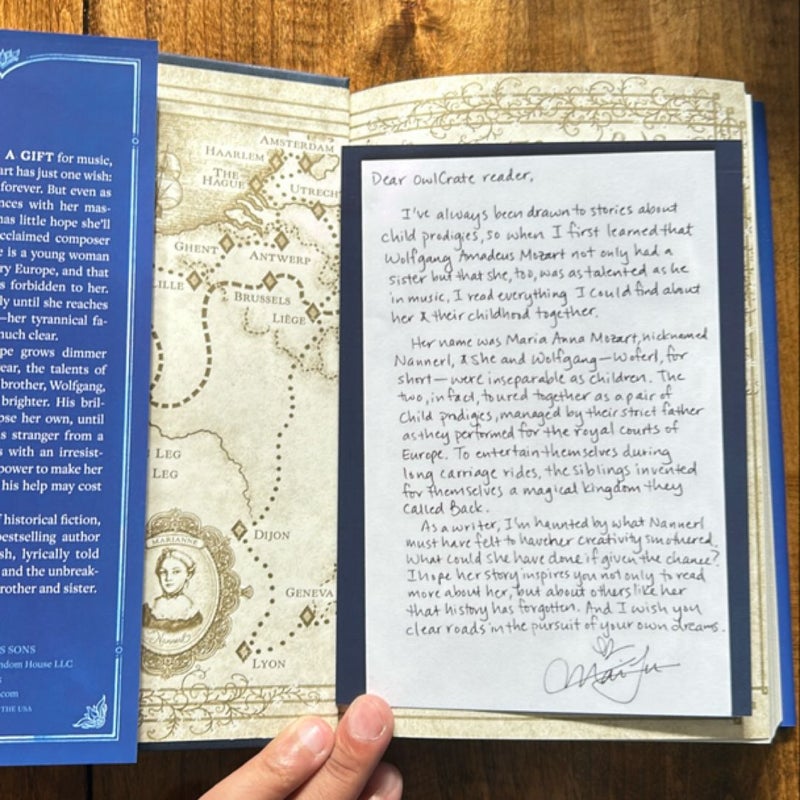 A GIFT for music,
art has just one wish:
forever. But even as
nces with her mas-
has little hope she'll
cclaimed composer
e is a young woman
ry Europe, and that
s forbidden to her.
ly until she reaches
—her tyrannical fa-
much clear.
pe grows dimmer
ear, the talents of
brother, Wolfgang,
brighter. His bril-
pse her own, until
s stranger from a
s with an irresist-
power to make her
his help may cost
f historical fiction,
bestselling author
sh, lyrically told
and the unbreak-
rother and sister.
S SONS
ndom House LLC
.com
THE USA
AMSTERDAM
HAARLEM
THE
HAGUE
UTRECH
GHENT
ANTWERP
LILLE
BRUSSELS
LIÈGE
LEG
LEG
DIJON
MARIANNE
Nannerl
GENEVA
LYON
Dear OwlCrate reader,
I've always been drawn to stories about
child prodigies, so when I first learned that
Wolfgang Amadeus Mozart not only had a
sister but that she, too, was as talented as he
in music, I read everything I could find about
her & their childhood together.
Her name was Maria Anna Mozart, nicknamed
Nannerl, & she and Wolfgang—Woferl, for
short—were inseparable as children. The
two, in fact, toured together as a pair of
child prodigies, managed by their strict father
as they performed for the royal courts of
Europe. To entertain themselves during
long carriage rides, the siblings invented
for themselves a magical kingdom they
called Back.
As a writer, I'm haunted by what Nannerl
must have felt to have her creativity smothered.
What could she have done if given the chance?
I hope her story inspires you not only to read
more about her, but about others like her
that history has forgotten. And I wish you
clear roads in the pursuit of your own dreams.